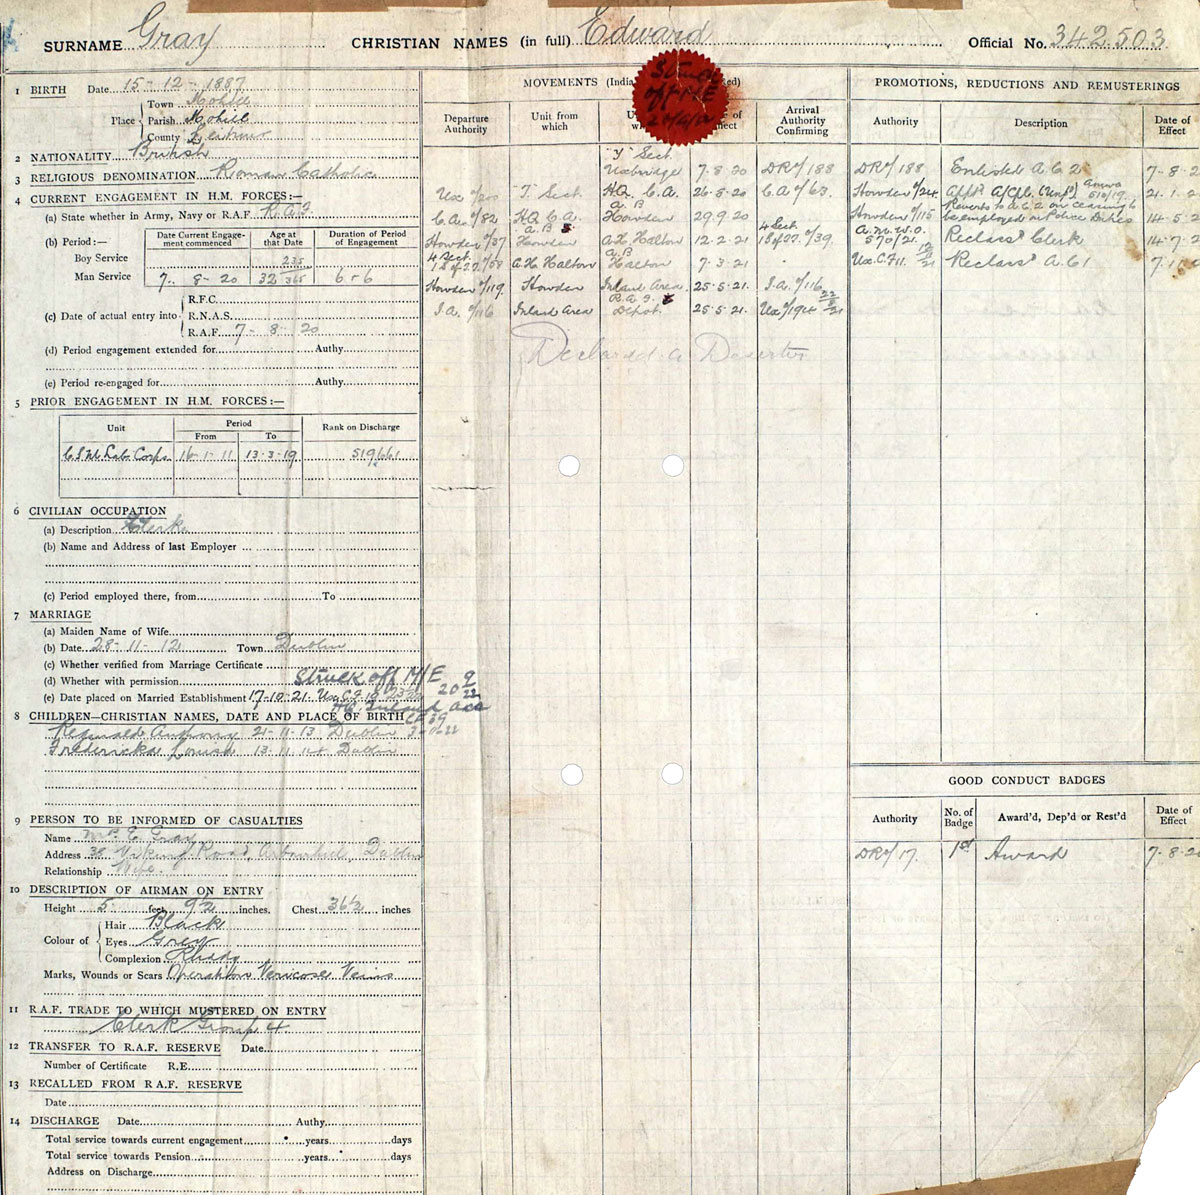 SURNAME Gray CHRISTIAN NAMES (in full) Edward Official No. 342.503
1 BIRTH Date 15-12-1887
Place Town Mohill
Parish Mohill
County
2 NATIONALITY British
3 RELIGIOUS DENOMINATION Roman Catholic
4 CURRENT ENGAGEMENT IN H.M. FORCES:—
(a) State whether in Army, Navy or R.A.F. R.A.F.
(b) Period:— Date Current Engagement commenced Age at that Date Duration of Period of Engagement
Boy Service
Man Service 7. 8-20 32 235/365 6-6
(c) Date of actual entry into
R.F.C.
R.N.A.S.
R.A.F. 7-8-20
(d) Period engagement extended for Authy
(e) Period re-engaged for Authy
5 PRIOR ENGAGEMENT IN H.M. FORCES:—
Unit Period From To Rank on Discharge
Lab Corps 16-1-11 13-3-19 519661
6 CIVILIAN OCCUPATION
(a) Description Clerk
(b) Name and Address of last Employer
(c) Period employed there, from To
7 MARRIAGE
(a) Maiden Name of Wife
(b) Date 28-11-12 Town Dublin
(c) Whether verified from Marriage Certificate
(d) Whether with permission Struck off M/E 20 9/22
(e) Date placed on Married Establishment 17-10-21.
HQ. Inland Area
8 CHILDREN—CHRISTIAN NAMES, DATE AND PLACE OF BIRTH
Reginald Anthony 21-11-13 Dublin
Fredericka Louisa 13-11-14 Dublin
9 PERSON TO BE INFORMED OF CASUALTIES
Name Mrs. E. Gray
Address 38 Viking Road, Arbourhill, Dublin
Relationship Wife.
10 DESCRIPTION OF AIRMAN ON ENTRY
Height 5 feet 9½ inches. Chest 36½ inches
Colour of Hair Black
Eyes Grey
Complexion
Marks, Wounds or Scars Operation Varicose Veins
11 R.A.F. TRADE TO WHICH MUSTERED ON ENTRY
Clerk Group 4
12 TRANSFER TO R.A.F. RESERVE Date
Number of Certificate R.E.
13 RECALLED FROM R.A.F. RESERVE
Date
14 DISCHARGE Date Authy.
Total service towards current engagement years days
Total service towards Pension years days
Address on Discharge
MOVEMENTS
Struck off M/E 20/9/22
Departure Authority Unit from which Arrival Authority Confirming
"T" Sect. Uxbridge 7-8-20 DRO/188
Ux 1/20 "T" Sect. HQ. C.A. 26-5-20 C.A 1/63.
C.A. 1/82 HQ C.A. A.B Howden 29.9.20
Howden 1/37 A.B.S. Howden A.H. Halton 12-2-21 4 Sect. 1/39.
4 Sect. A.H Halton A.B Halton 7-3-21
Howden 1/119 Howden Inland Area 25-5-21. I.A. 1/116
I.A. 1/116 Inland Area R.A.F. Depot. 25-5-21.
Declared a Deserter
PROMOTIONS, REDUCTIONS AND REMUSTERINGS
Authority Description Date of Effect
DRO/188 Enlisted A.C 2 7-8-2
Howden 1/24. 21.1.2
Howden 1/115 Reverts to A.C 2 on ceasing to be employed on Police Duties 14-5-2
A.M.W.O. 570/21. Reclassd Clerk 14-7-2
Reclassd A.C 1
GOOD CONDUCT BADGES
Authority No. of Badge Award'd, Dep'd or Rest'd Date of Effect
DRO/17. 1st Award 7-8-2